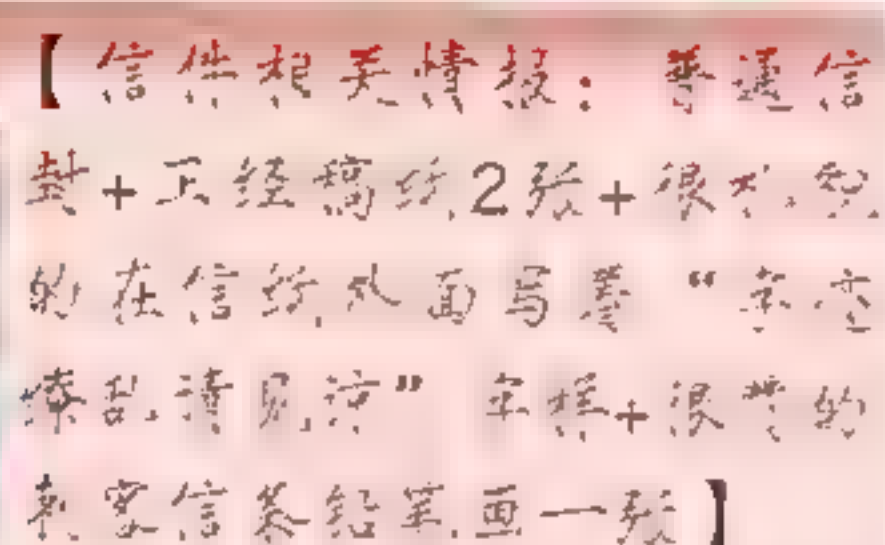 【信件相关情报：普通信
封+正经稿纸2张+很不
的在信纸外面写着“字
缭乱请见谅” 字样+很赞的
信 铅笔画一张】